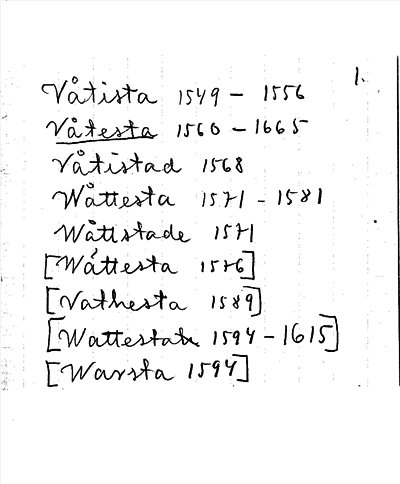 1.
Våtista 1549 – 1556
Våtesta 1560 – 1665
Våtistad 1568
Wåttesta 1571 – 1581
Wåttstade 1571
[Wåttesta 1576]
[Vathesta 1589]
[ 1594 – 1615]
[Warsta 1594]